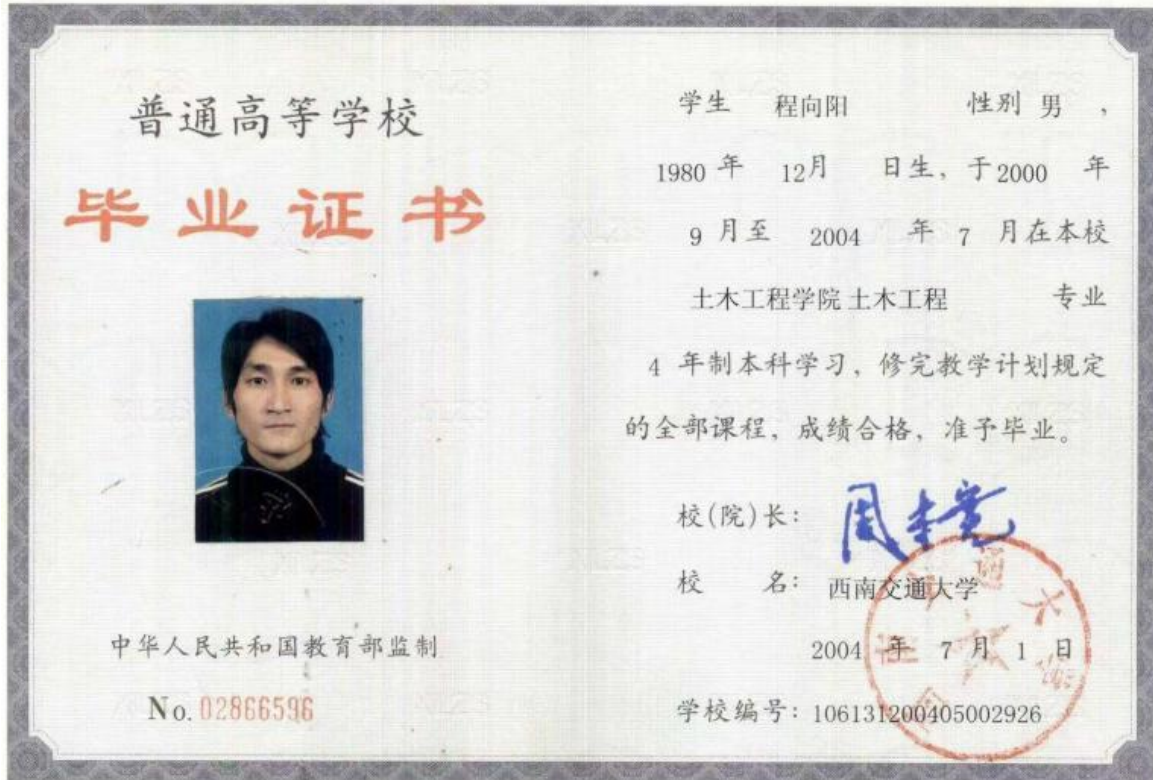 普通高等学校
毕业证书
中华人民共和国教育部监制
No. 02866596
学生 程向阳 性别 男 ,
1980 年 12月 日生, 于2000 年
9 月至 2004 年 7 月在本校
土木工程学院 土木工程 专业
4 年制本科学习, 修完教学计划规定
的全部课程, 成绩合格, 准予毕业。
校(院)长:
校 名: 西南交通大学
2004 年 7 月 1 日
学校编号: 106131200405002926